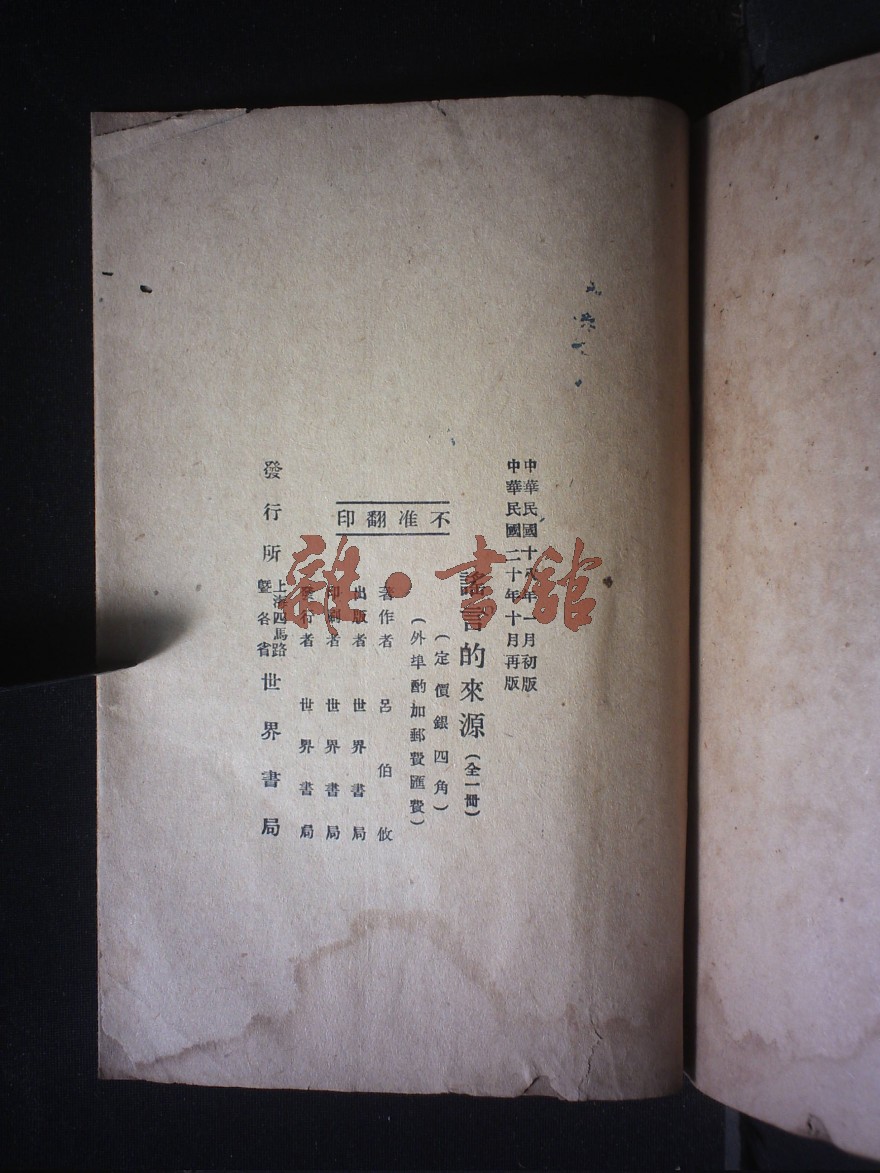 中華民國十八年一月初版
中華民國二十年十月再版
謠言的來源(全一冊)
(定價銀四角)
(外埠酌加郵費匯費)
不准翻印
著作者 呂伯攸
出版者 世界書局
印刷者 世界書局
發行者 世界書局
發行所 上海四馬路暨各省 世界書局
雜·書館